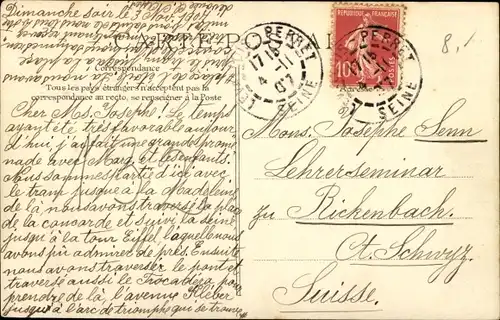 Dimanche soir le 3 Nov. 1907
CARTE POSTALE
Correspondance
Tous les pays étrangers n'acceptent pas la
correspondance au recto, se renseigner à la Poste
Cher Ms. Josephe! Le temps
ayant été très favorable aujour-
d'hui, j'ai fait une grande prome-
nade avec Marg. et les enfants.
Nous sommes partis d'ici avec
le tram jusque à la Madeleine
de là nous avons traverser la place
de la concorde et suivi la seine
jusqu'à la tour Eiffel, laquelle nous
avons pu admirer de près. Ensuite
nous avons traverser le pont et
traversé aussi le Trocadero, pour
prendre de là, l'avenue Kleber
jusqu'à l'arc de triomphe qui se trouve
LEVALLOIS-PERRET
4 -11
07
SEINE
REPUBLIQUE FRANÇAISE
10
POSTES
PERRET
SEINE
8,1
Mons. Josephe Senn
Lehrerseminar
zu Rickenbach.
Ct. Schwyz.
Suisse.